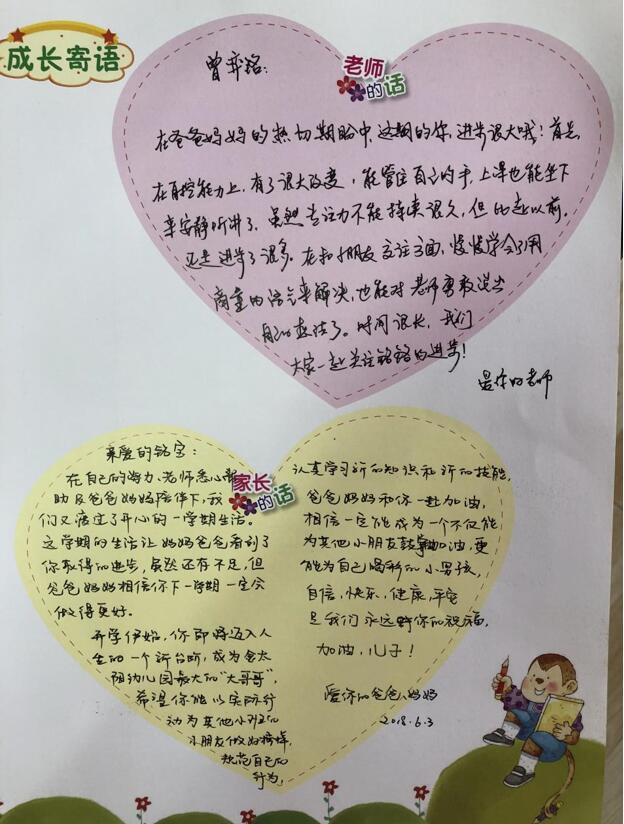 成长寄语
老师的话
曾弈铭:
在爸爸妈妈的热切期盼中,这期的你,进步很大哦!首先,
在自控能力上,有了很大改变,能管住自己的手,上课也能坐下
来安静听讲了。虽然专注力不能持续很久,但比起以前,
还是进步了很多。在和朋友交往方面,慢慢学会了用
商量的语气来解决,也能对老师勇敢说出
自己的想法了。时间很长,我们
大家一起关注铭铭的进步!
爱你的老师
家长的话
亲爱的铭宝:
在自己的努力、老师悉心帮
助及爸爸妈妈陪伴下,我
们又度过了开心的一学期生活。
这学期的生活让妈妈爸爸看到了
你取得的进步,虽然还有不足,但
爸爸妈妈相信你下一学期一定会
做得更好。
开学伊始,你即将迈入人
生的一个新台阶,成为金太
阳幼儿园最大的“大哥哥”,
希望你能以实际行
动为其他小班的
小朋友做好榜样,
规范自己的
行为,
认真学习新的知识和新的技能,
爸爸妈妈和你一起加油,
相信一定能成为一个不仅能
为其他小朋友鼓掌加油,更
能为自己喝彩的小男孩,
自信、快乐、健康、平安
是我们永远对你的祝福,
加油,儿子!
爱你的爸爸、妈妈
2018.6.3